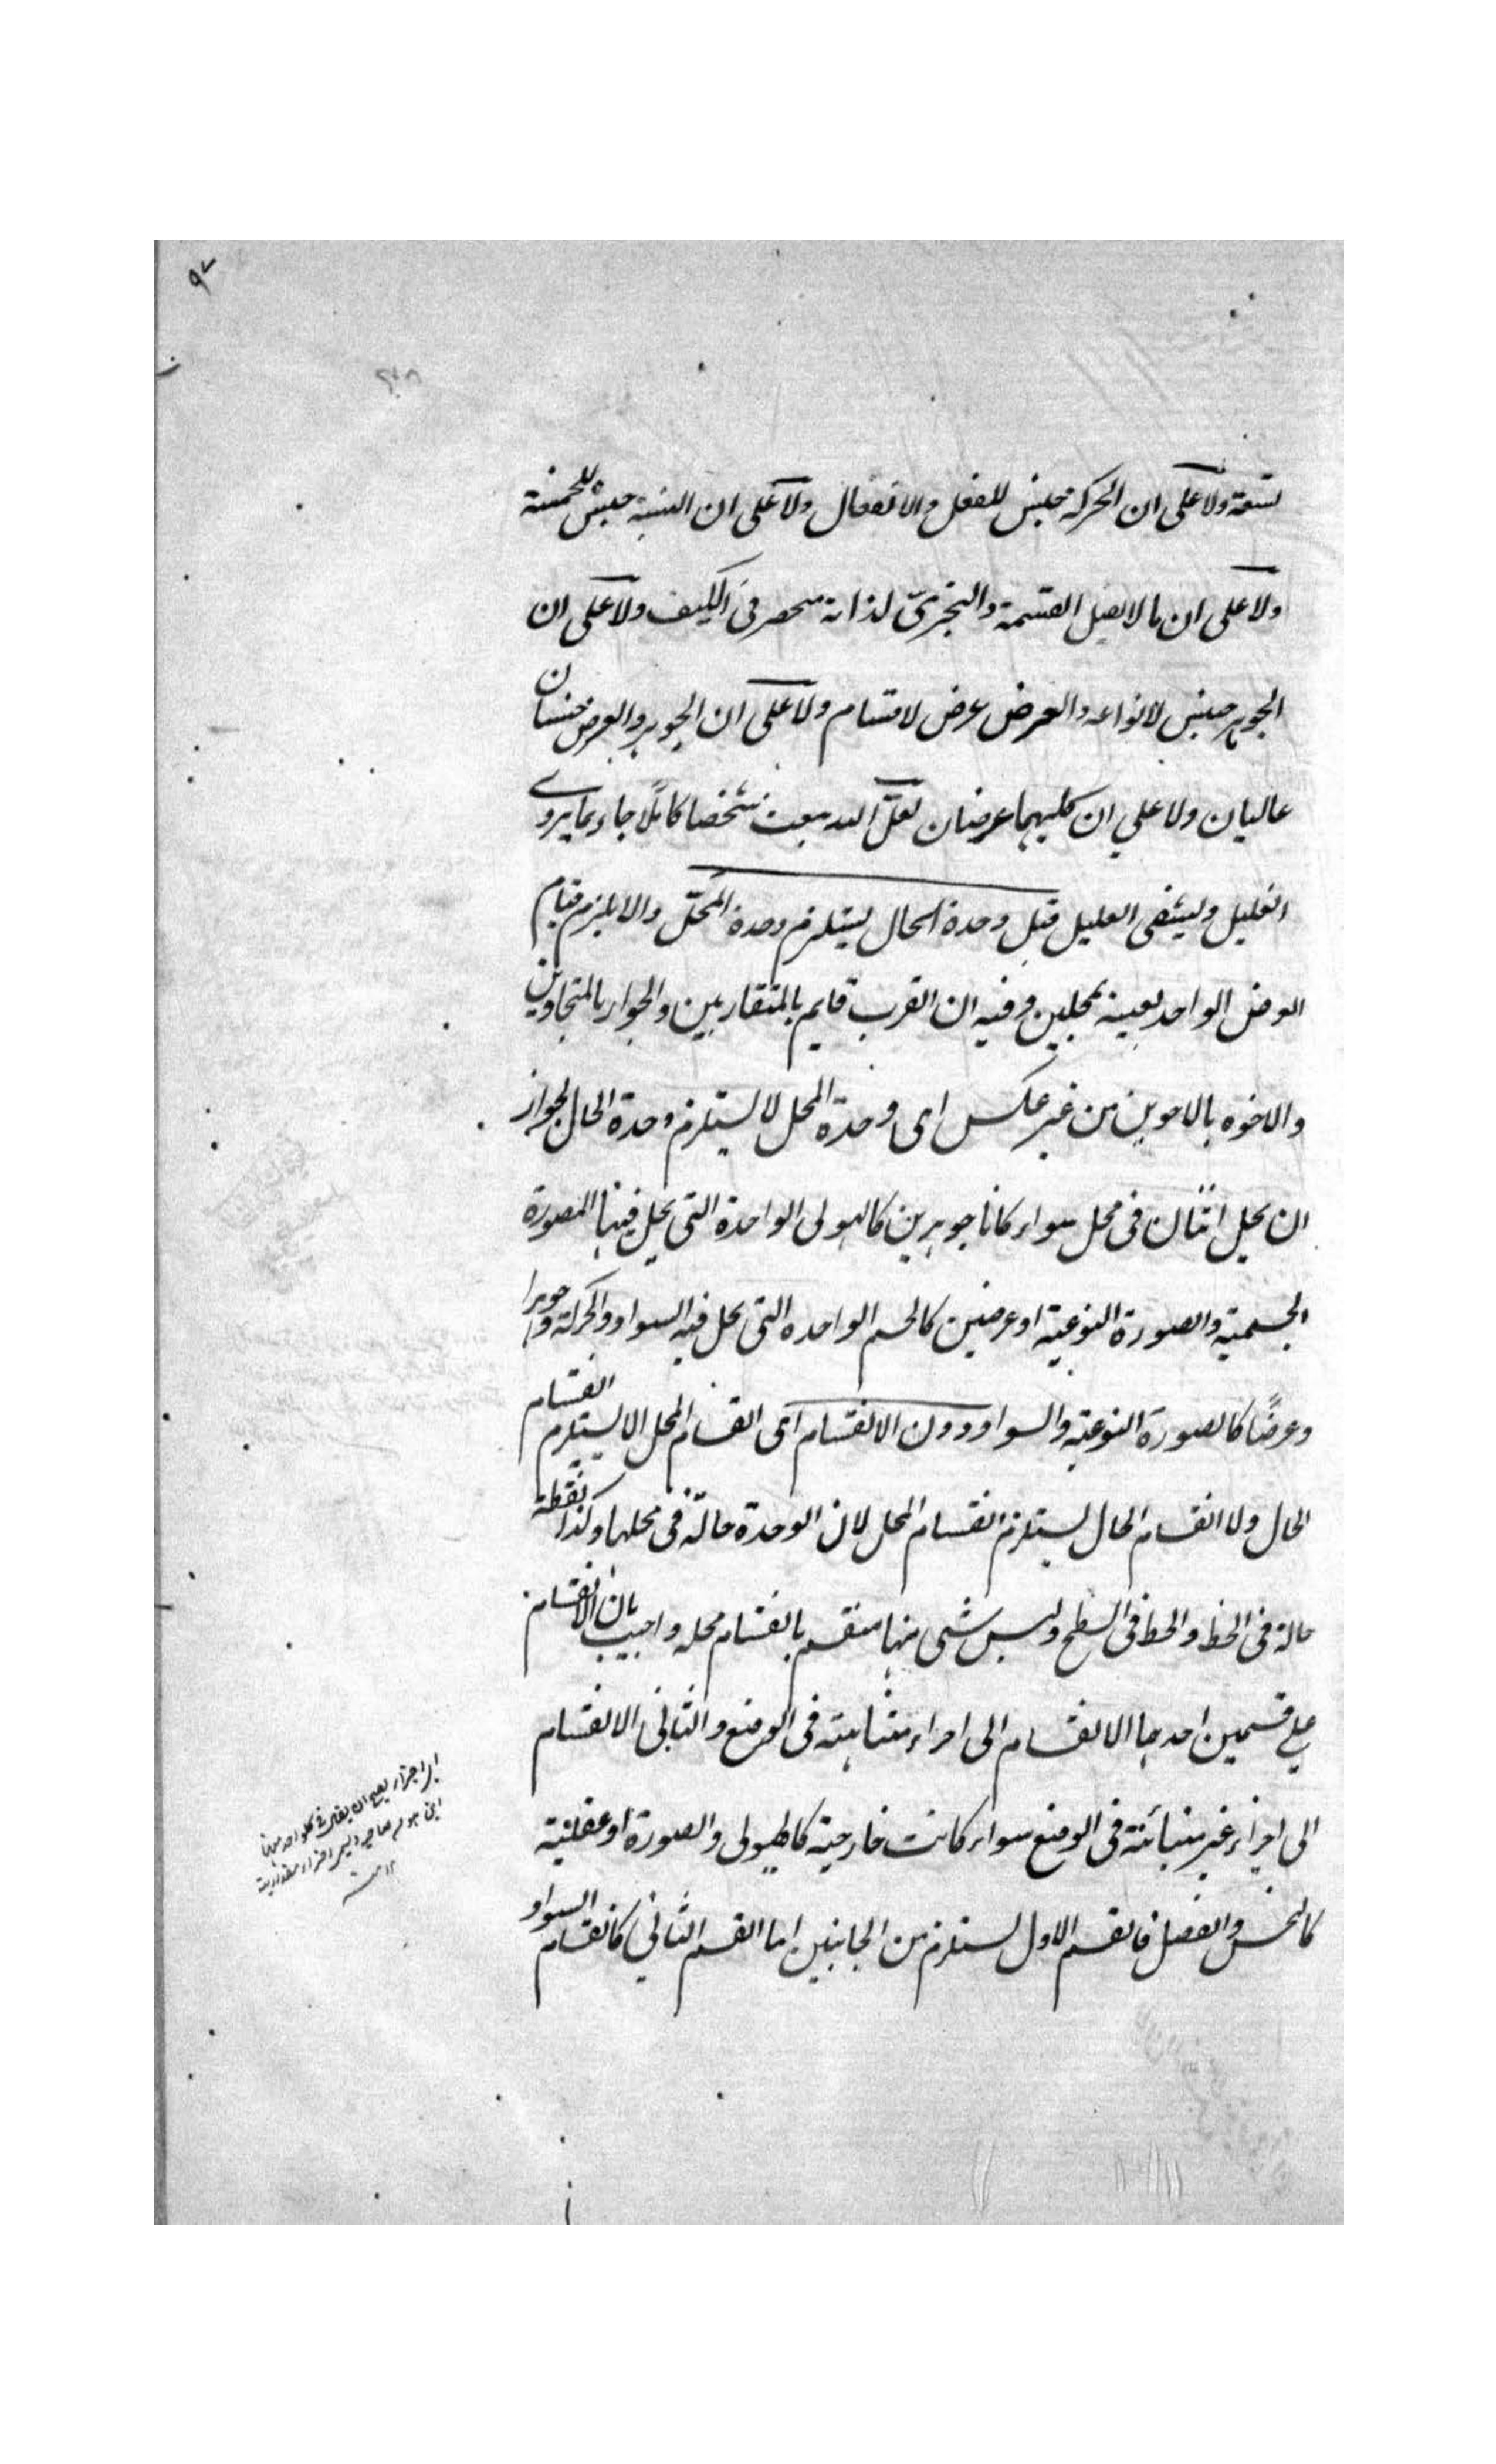 ٩٧
تسعة ولا على ان الحركة جنس للفعل والانفعال ولا على ان النسبة جنس للخمسة
ولا على ان ما لا يقبل القسمة والتجزى لذاته منحصر فى الكيف ولا على ان
الجوهر جنس لانواعه والعرض عرض لاقسام ولا على ان الجوهر والعرض جنسان
عاليان ولا على ان كليهما عرضان لعل الله يبعث شخصا كاملًا جاء بما يروى
الغليل ويشفى العليل قيل وحدة الحال يستلزم وحدة المحلّ والا يلزم قيام
العرض الواحد بعينه بمحلين وفيه ان القرب قايم بالمتقاربين والجوار بالمتجاورين
والاخوه بالاخوين من غير عكس اى وحدة المحل لا يستلزم وحدة الحال لجواز
ان يحل اثنان فى محل سواء كانا جوهرين كالهيولى الواحدة التى يحل فيها الصورة
الجسمية والصورة النوعية او عرضين كالجسم الواحد التى يحل فيه السواد والحركة او جوهرا
وعرضًا كالصورة النوعية والسواد ودون الانقسام اى انقسام المحل لا يستلزم انقسام
الحال ولا انقسام الحال يستلزم انقسام المحل لان الوحدة حالّة فى محلها وكذا نقطة
حالة فى الخط والخط فى السطح وليس شئ منها منقسم بانقسام محله واجيب بان الانقسام
على قسمين احدهما الانقسام الى اجزاء متباينة فى الوضع والثانى الانقسام
الى اجزاء غير متبائنة فى الوضع سواء كانت خارجية كالهيولى والصورة او عقلية
كالجنس والفصل فالقسم الاول يستلزم من الجانبين اما القسم الثانى كانقسام السواد
اى اجزاء يصح ان يفرض فى كل واحد منها
اين هو من صاحبه وليس اجزاء مقدارية
١٢ منه